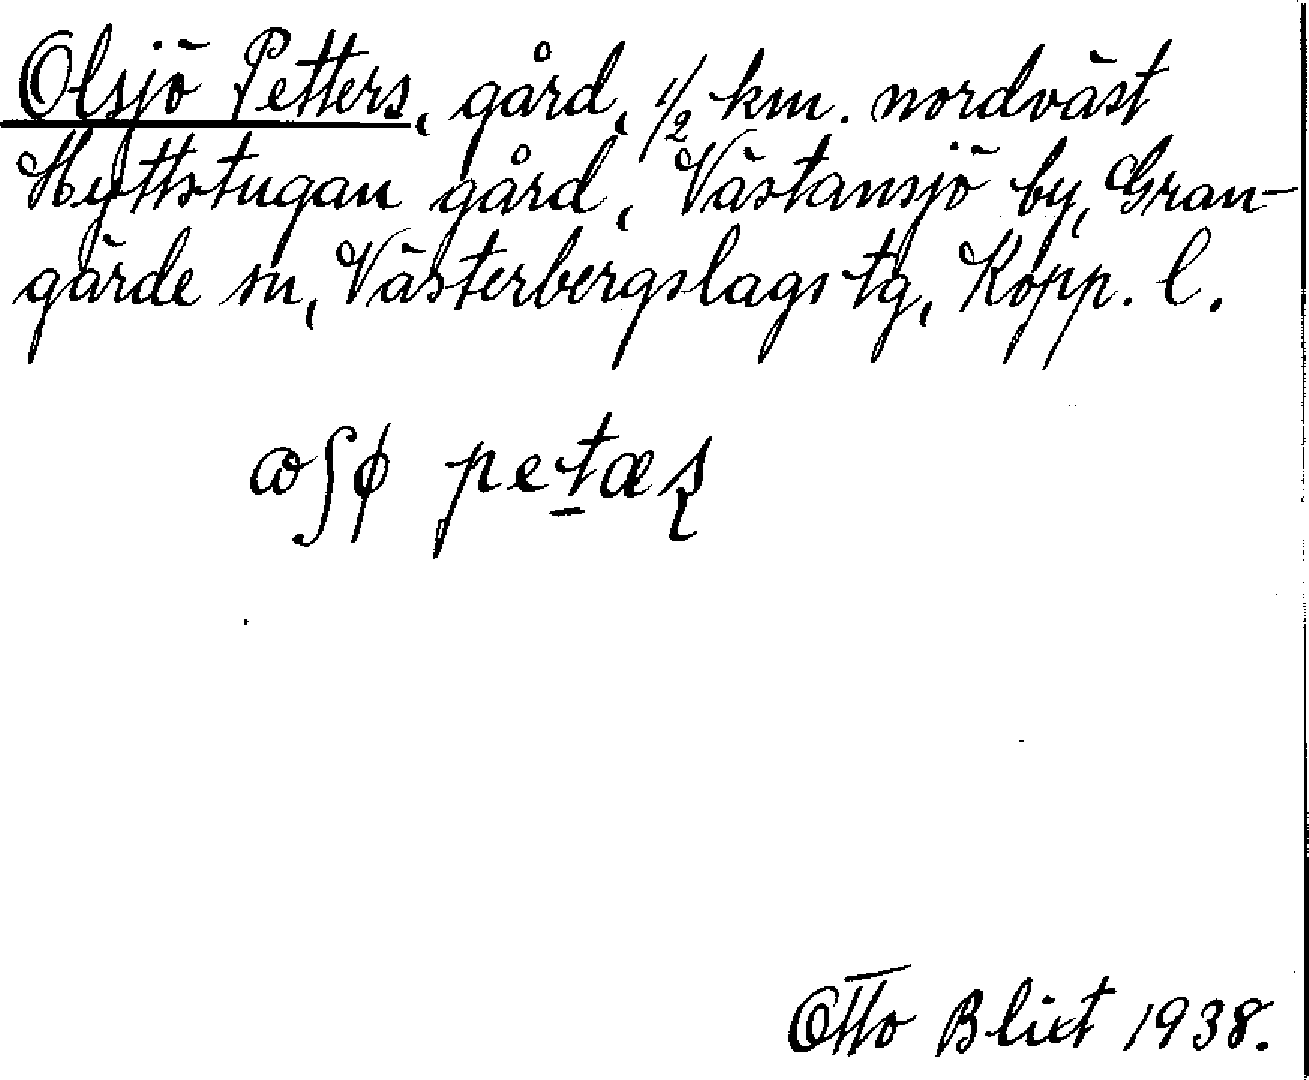 Olsjö Petters, gård, 1/2 km. nordväst
Hyttstugan gård, Västansjö by, Gran-
gärde sn, Västerbergslags tg, Kopp. l.
petæʂ
Otto Blixt 1938.